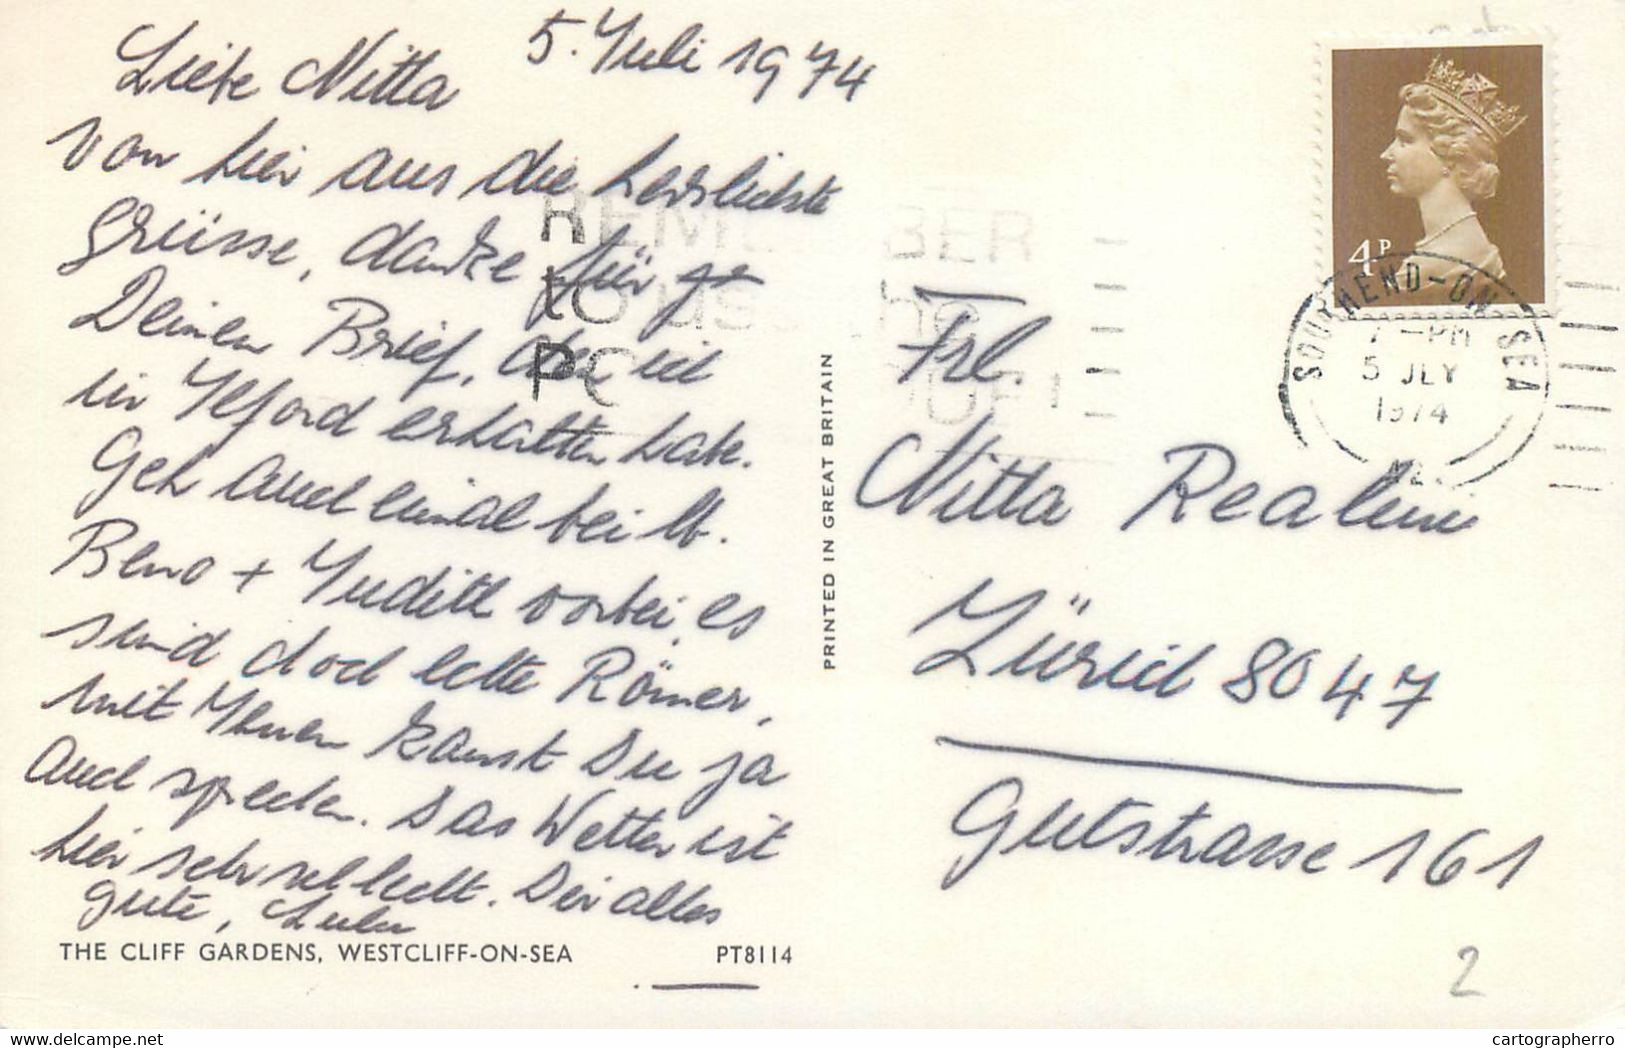 5. Juli 1974
Liebe Nitta
von hier aus die herzlichste
Grüsse, danke für
Deinen Brief, den ich
in Ilford erhalten habe.
Geh auch einmal bei lb.
Beno + Judith vorbei, es
sind doch echte Römer,
mit Ihnen kanst Du ja
auch sprechen. Das Wetter ist
hier sehr schlecht. Dir alles
gute, Lulu
THE CLIFF GARDENS, WESTCLIFF-ON-SEA PT8114
PRINTED IN GREAT BRITAIN
REMEMBER
to use the
4P
SOUTHEND-ON-SEA
7-PM
5 JLY
1974
Frl.
Nitta Realini
Zürich 8047
Gutstrasse 161
2
akpool.co.uk
cartographerro